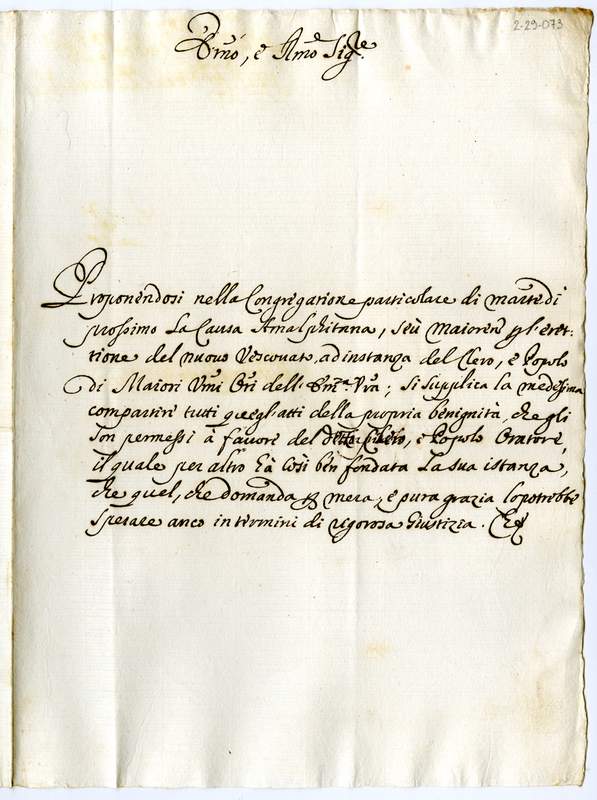 2-29-073
Emo, e Rmo Sigre.
Proponendosi nella Congregatione particolare di martedi
prossimo La Causa Amalphitana, seù Maioren per l'eret-
tione del nuovo Vescovato, ad instanza del Clero, e Popolo
di Maiori Umi Ori dell' Emza Vra; si supplica la medesima
compartire tutti quegl'atti della propria benignità, che gli
son permessi à favore del Clero, e Popolo Oratore,
il quale per altro hà così ben fondata la sua istanza,
che quel, che domanda per mera, e pura grazia lo potrebbe
sperare anco in termini di rigorosa Giustizia. Che